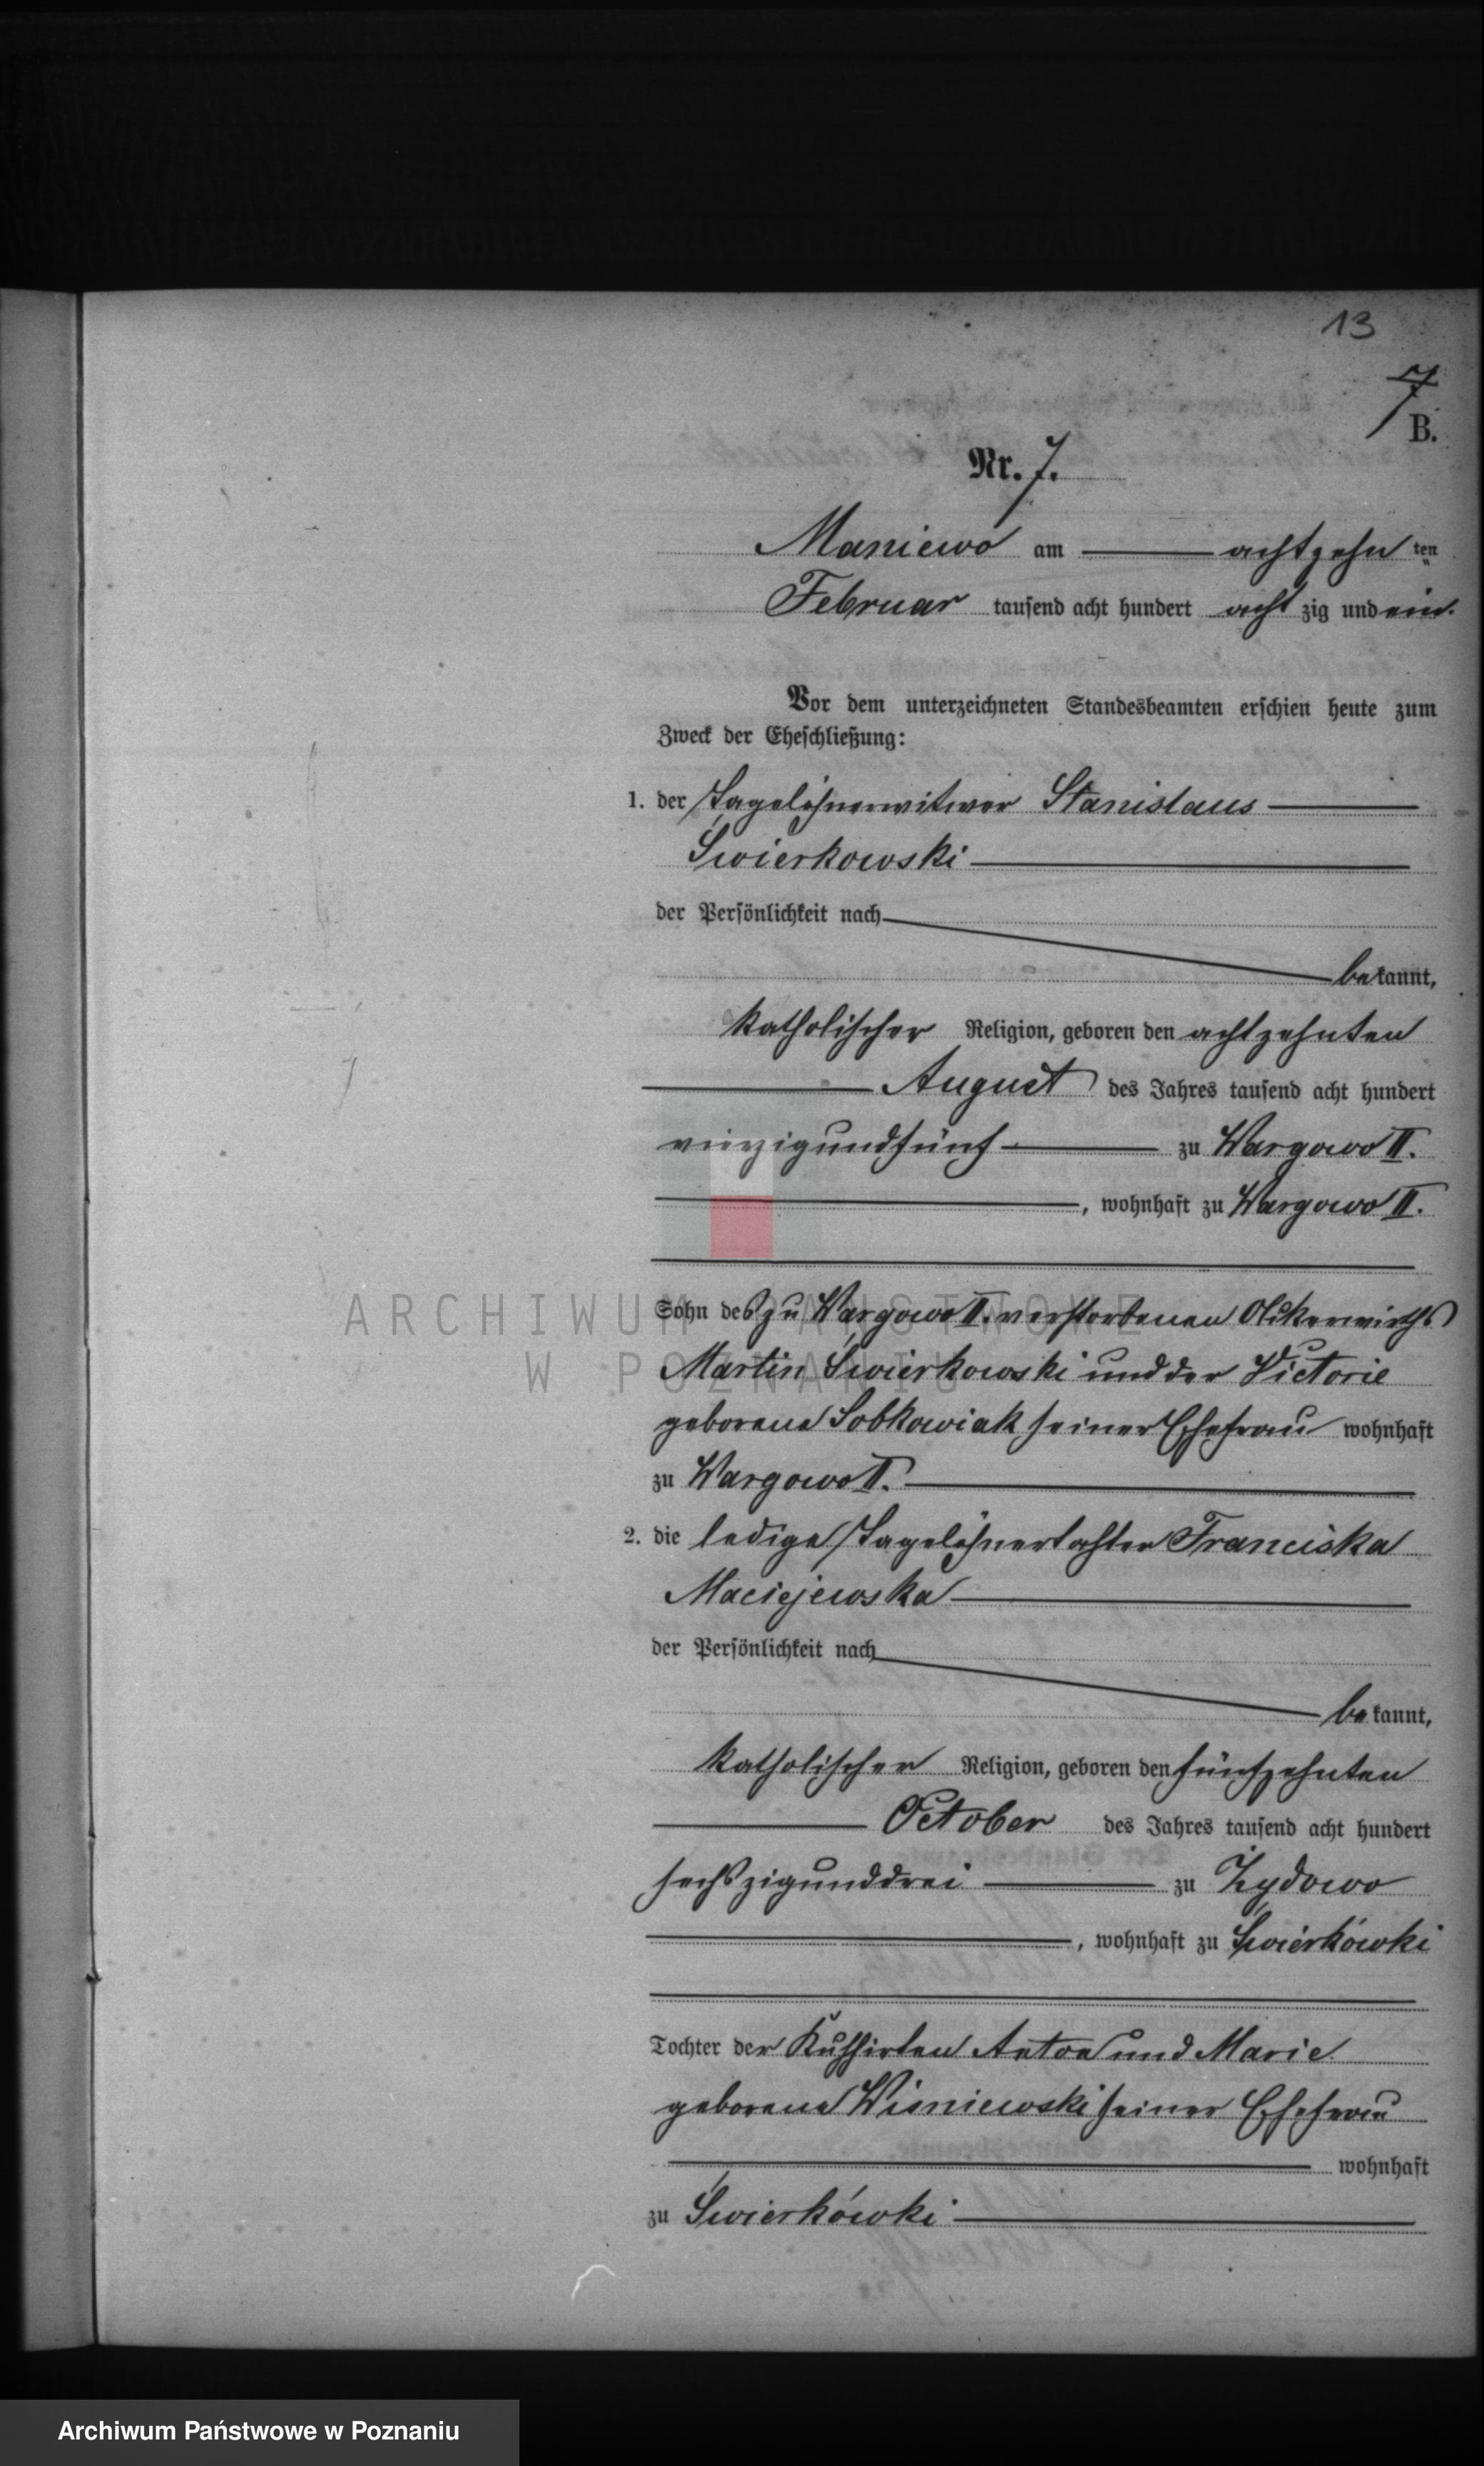 13
7
B.
Nr. 7.
Maniewo am achtzehn ten
Februar tausend acht hundert acht zig und ein.
Vor dem unterzeichneten Standesbeamten erschien heute zum
Zweck der Eheschließung:
1. der Tagelöhnerwitwer Stanislaus
Świerkowski
der Persönlichkeit nach
bekannt,
katholischer Religion, geboren den achtzehnten
August des Jahres tausend acht hundert
vierzigundfünf zu Wargowo II.
, wohnhaft zu Wargowo II.
Sohn des zu Wargowo II. verstorbenen Ackerwirths
Martin Świerkowski und der Victorie
geborene Sobkowiak seiner Ehefrau wohnhaft
zu Wargowo II.
2. die ledige Tagelöhnertochter Franciska
Maciejewska
der Persönlichkeit nach
bekannt,
katholischer Religion, geboren den fünfzehnten
October des Jahres tausend acht hundert
sechszigunddrei zu Żydowo
, wohnhaft zu Świerkówki
Tochter der Kuhhirten Anton und Marie
geborene Wisniewski seiner Ehefrau
wohnhaft
zu Świerkówki
ARCHIWUM PAŃSTWOWE
W POZNANIU
Archiwum Państwowe w Poznaniu